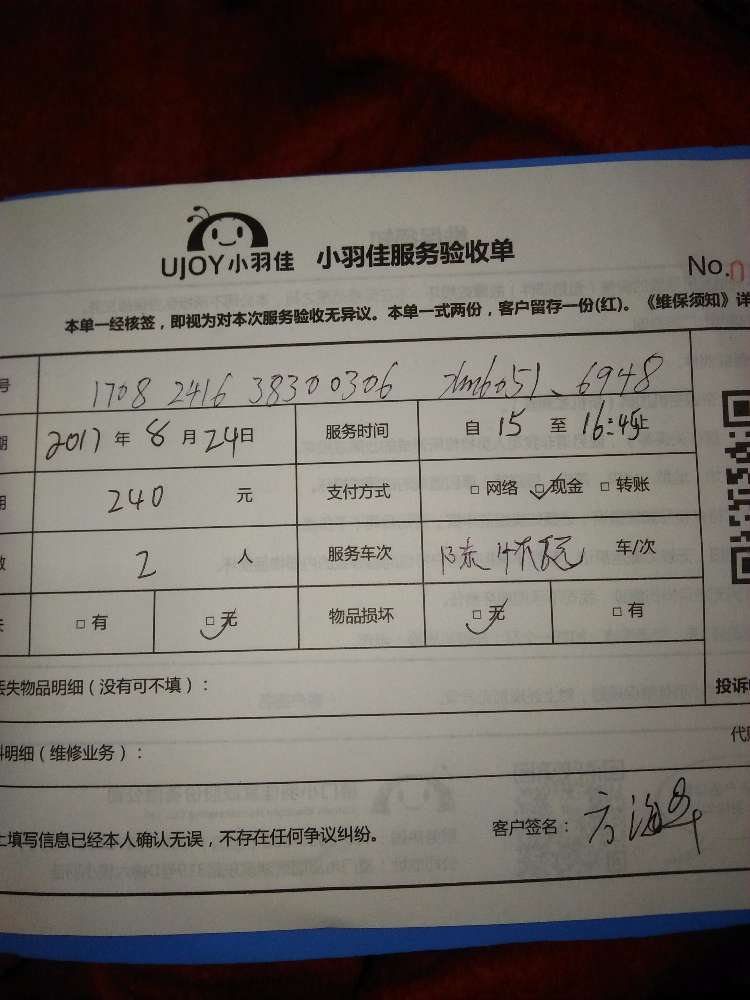 UJOY小羽佳 小羽佳服务验收单
No.
本单一经核签，即视为对本次服务验收无异议。本单一式两份，客户留存一份(红)。《维保须知》详
号 1708 2416 38300306 xm6051、6948
期 2017 年 8 月 24 日 服务时间 自 15 至 16:45止
用 240 元 支付方式 □ 网络 □ 现金 □ 转账
数 2 人 服务车次 车/次
失 □ 有 □ 无 物品损坏 □ 无 □ 有
丢失物品明细（没有可不填）：
投诉
料明细（维修业务）：
上填写信息已经本人确认无误，不存在任何争议纠纷。 客户签名：方海